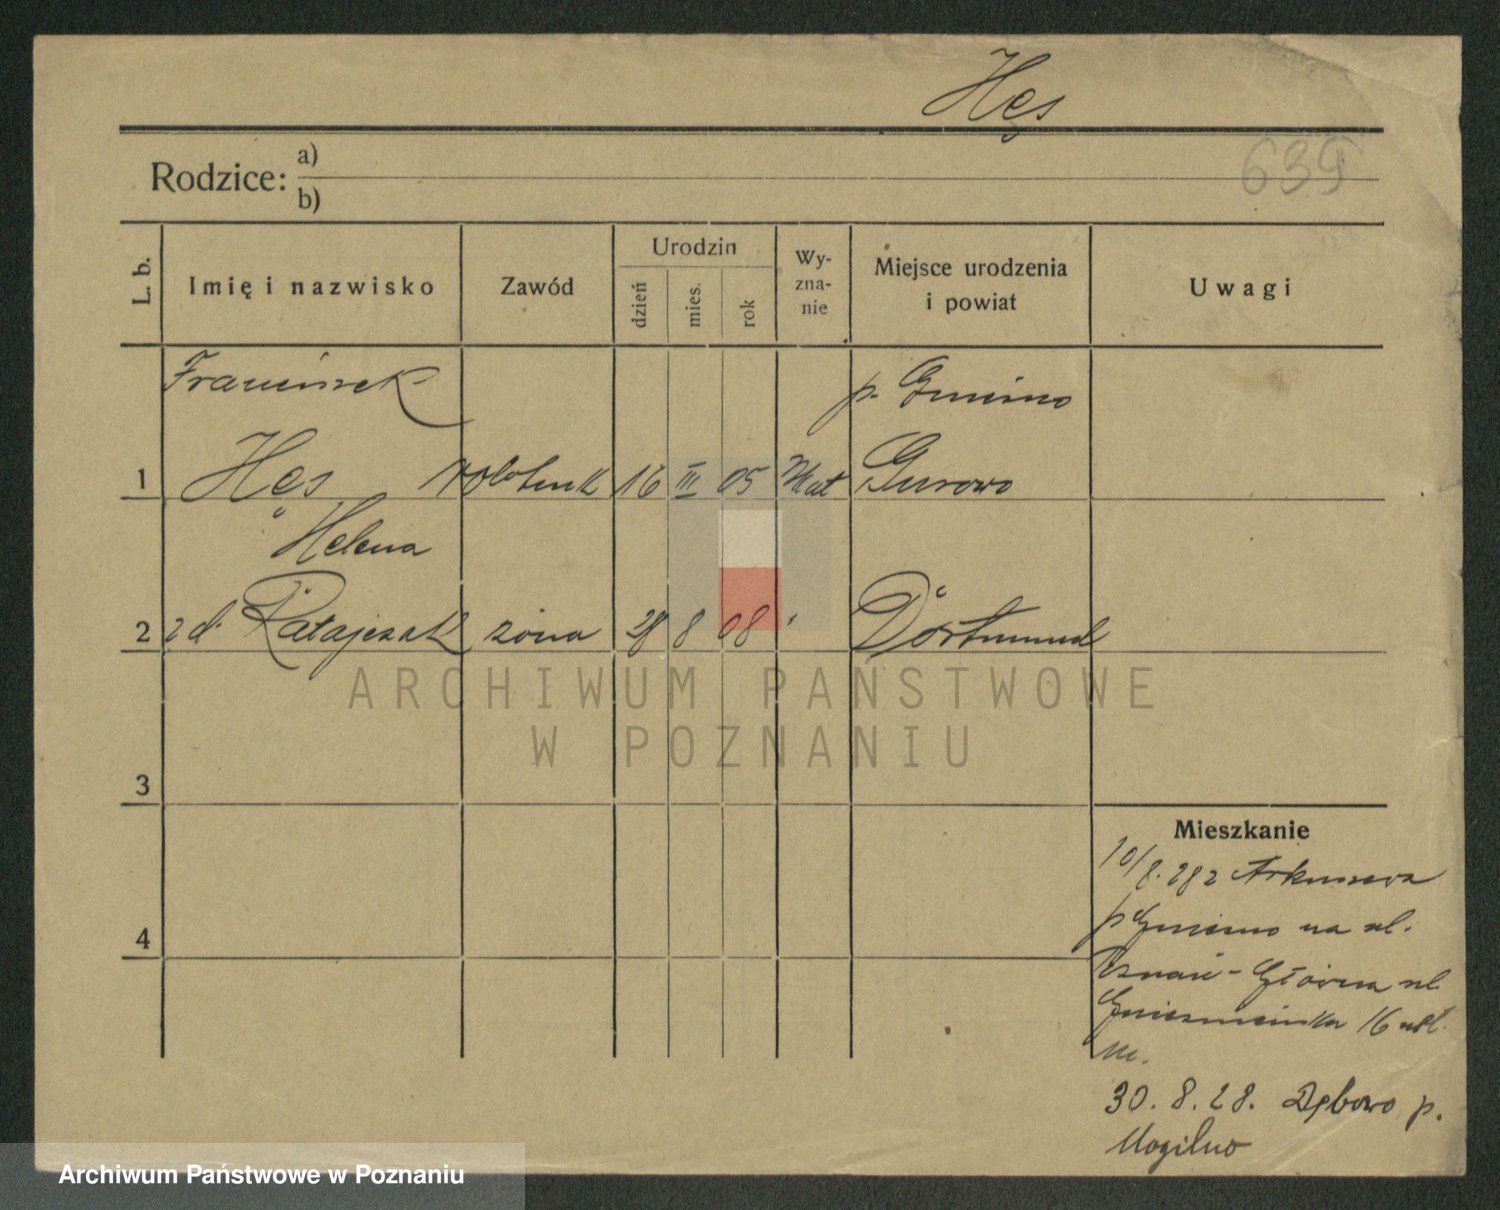 Hęs
639
Rodzice: a)
b)
L. b. Imię i nazwisko Zawód Urodzin dzień mies. rok Wy-zna-nie Miejsce urodzenia i powiat Uwagi
Franciszek p. Gniezno
1 Hęs robotnik 16 III 05 kat Gurowo
Helena
2 z d. Ratajczak żona 28 8 08 " Dortmund
ARCHIWUM PAŃSTWOWE
W POZNANIU
3
4
Mieszkanie
10/8.28 z Arkuszewa
p Gniezno na ul.
Poznań - Główna ul.
Gnieźnieńska 16
30. 8. 28. Dębowo p.
Mogilno
Archiwum Państwowe w Poznaniu